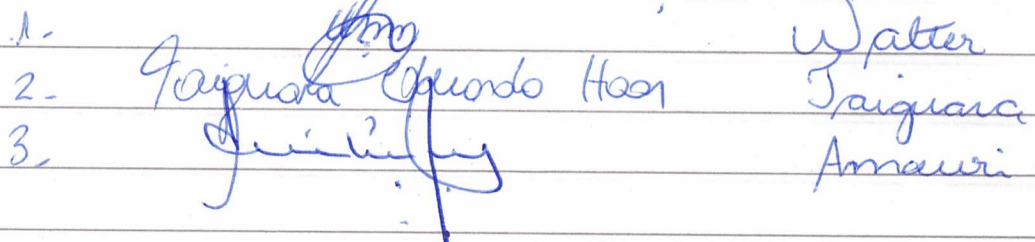 1. Walter
2. Taiguara Eduardo Haas Taiguara
3. Amauri